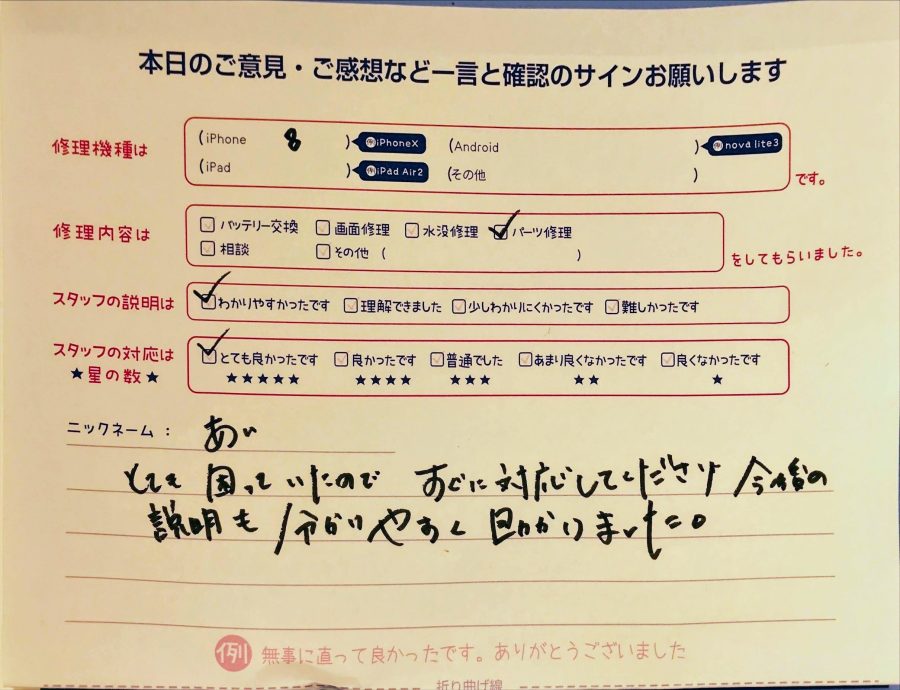 本日のご意見・ご感想など一言と確認のサインお願いします
修理機種は (iPhone 8 ) 例iPhoneX (Android ) 例nova lite3
(iPad ) 例iPad Air2 (その他 ) です。
修理内容は バッテリー交換 画面修理 水没修理 パーツ修理
相談 その他 ( ) をしてもらいました。
スタッフの説明は わかりやすかったです 理解できました 少しわかりにくかったです 難しかったです
スタッフの対応は とても良かったです 良かったです 普通でした あまり良くなかったです 良くなかったです
★星の数★ ★★★★★ ★★★★ ★★★ ★★ ★
ニックネーム: あい
とても困っていたので すぐに対応してくださり 今後の
説明も 分かりやすく 助かりました。
例 無事に直って良かったです。ありがとうございました
折り曲げ線